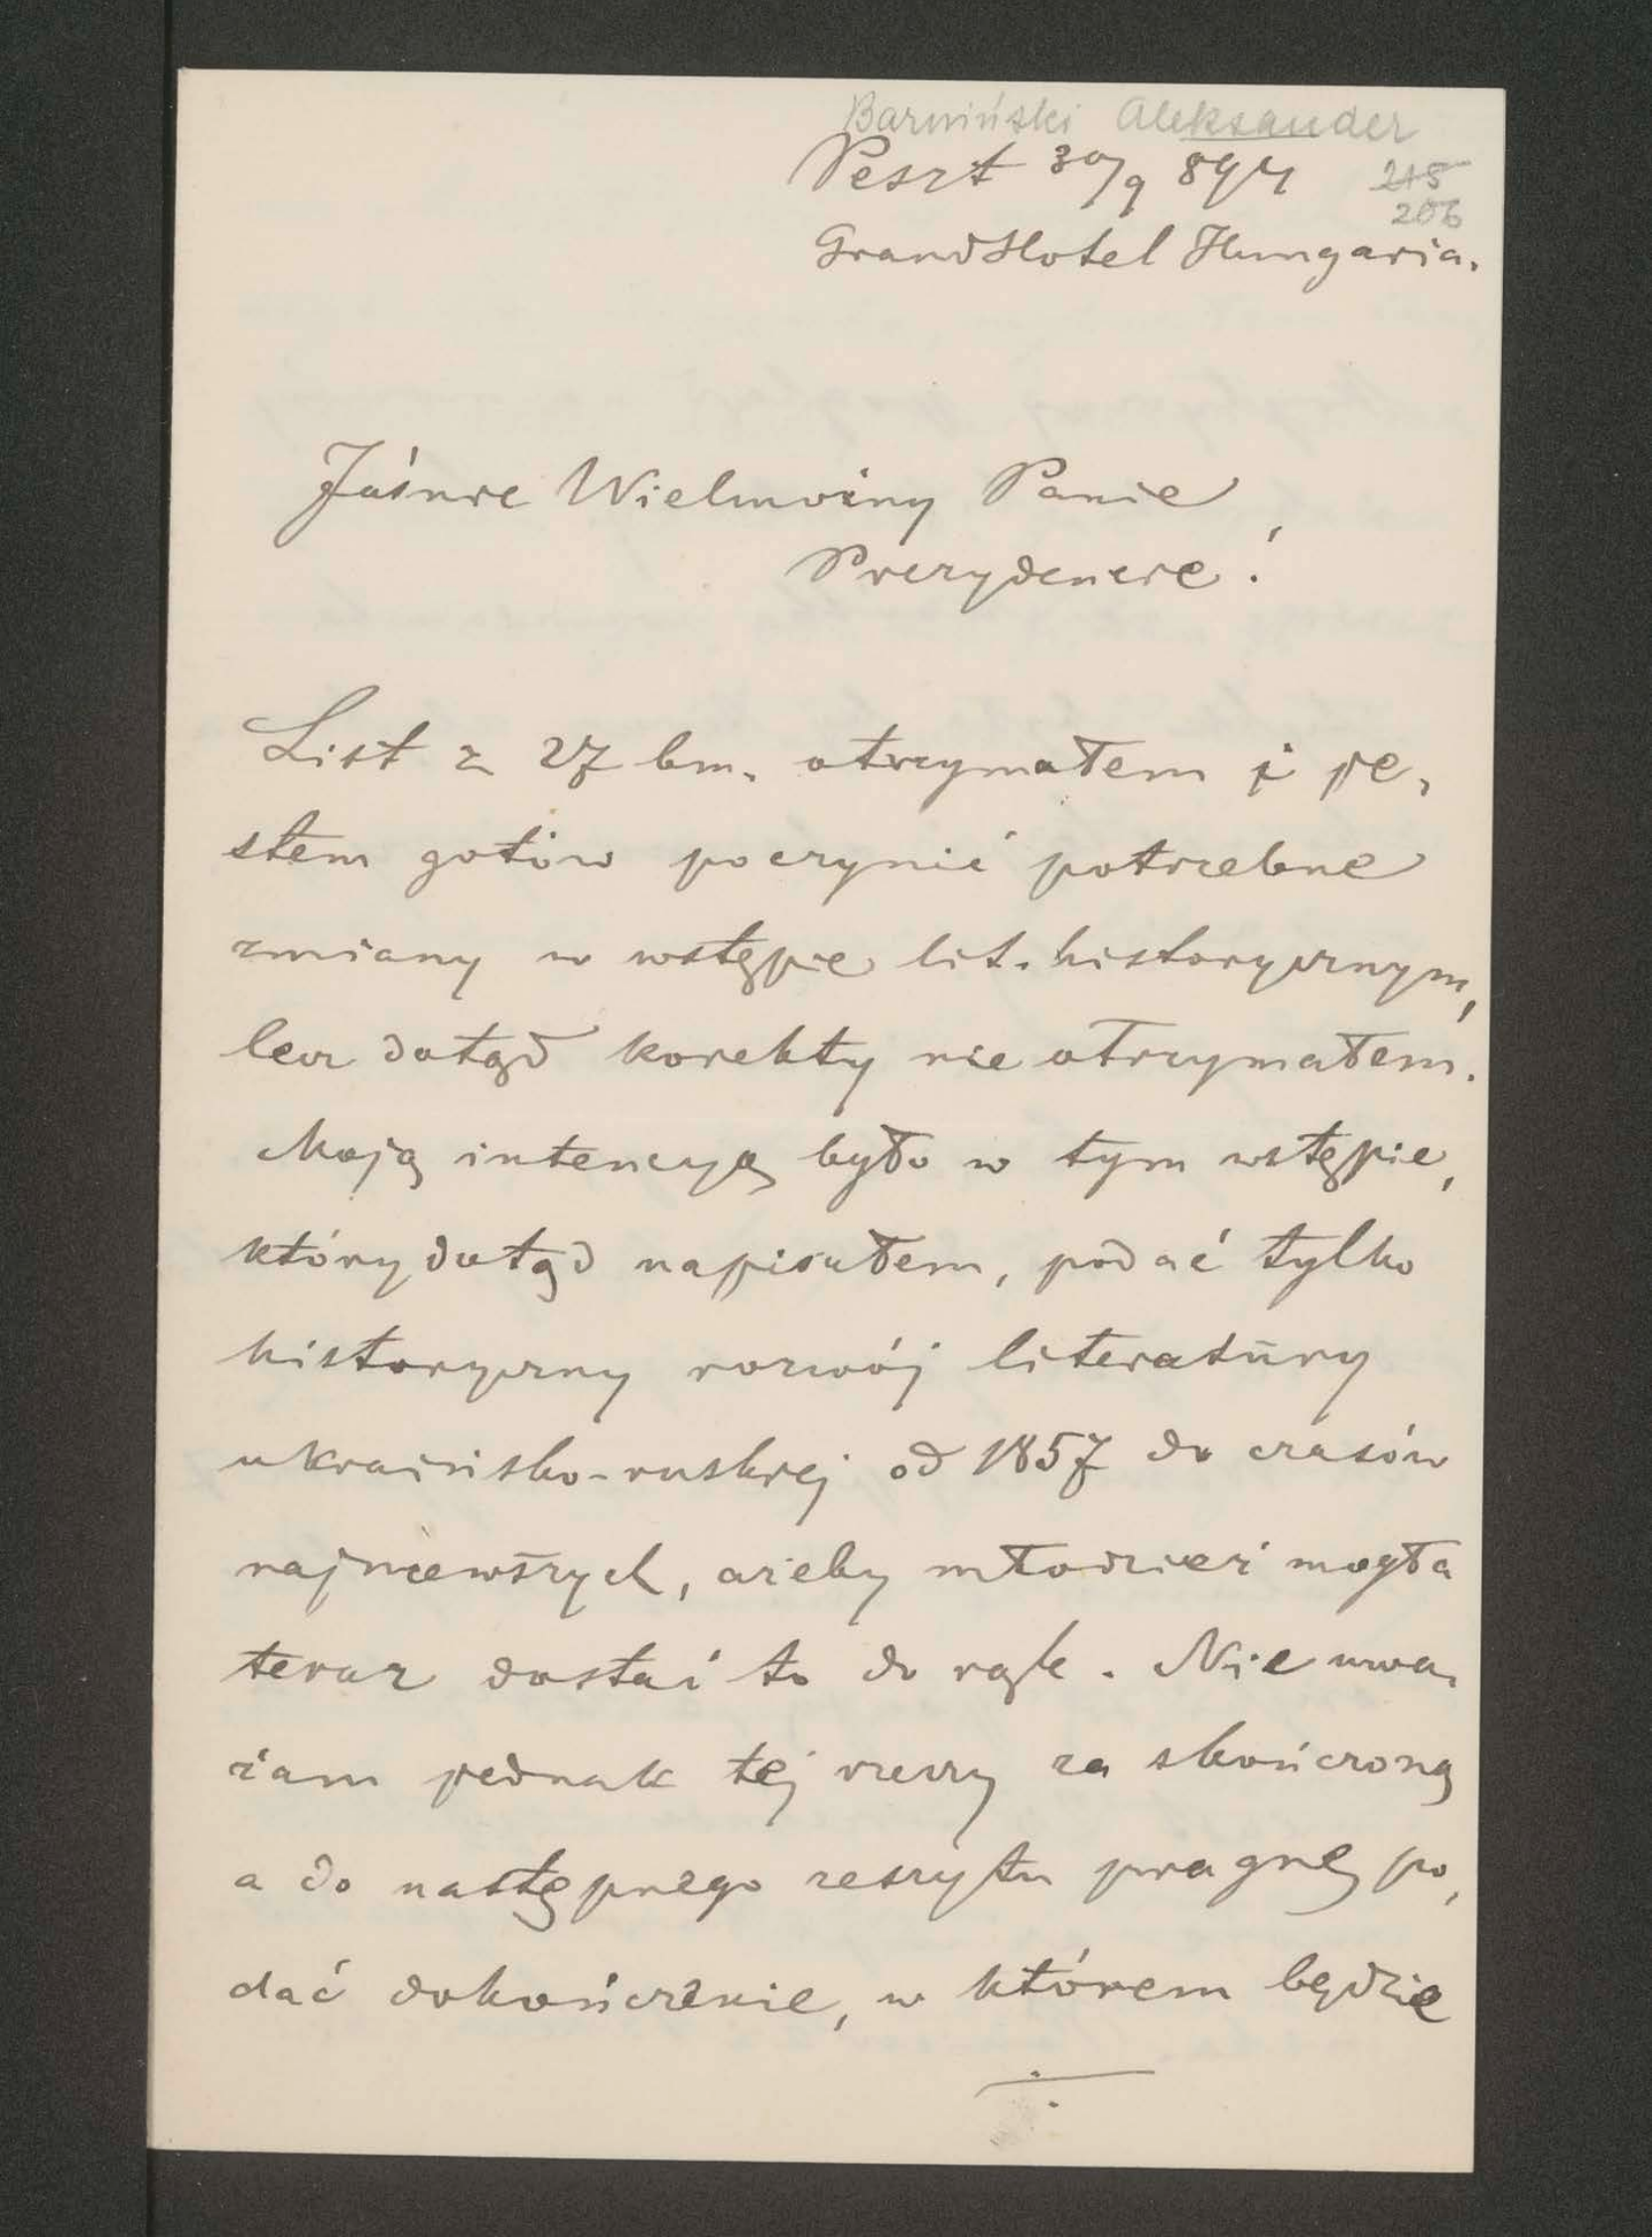 Barwiński Aleksander
Peszt 30/9 894
215
206
Grand Hotel Hungaria.
Jaśnie Wielmożny Panie
Prezydencie!
List z 27 bm. otrzymałem i je-
stem gotów poczynić potrzebne
zmiany w wstępie lit. historycznym,
lecz dotąd korekty nie otrzymałem.
Moją intencyą było w tym wstępie,
który dotąd napisałem, podać tylko
historyczny rozwój literatury
ukraińsko-ruskiej od 1857 do czasów
najnowszych, ażeby młodzież mogła
teraz dostać to do rąk. Nie uwa-
żam jednak tej rzeczy za skończoną
a do następnego zeszytu pragnę po-
dać dokończenie, w którem będzie